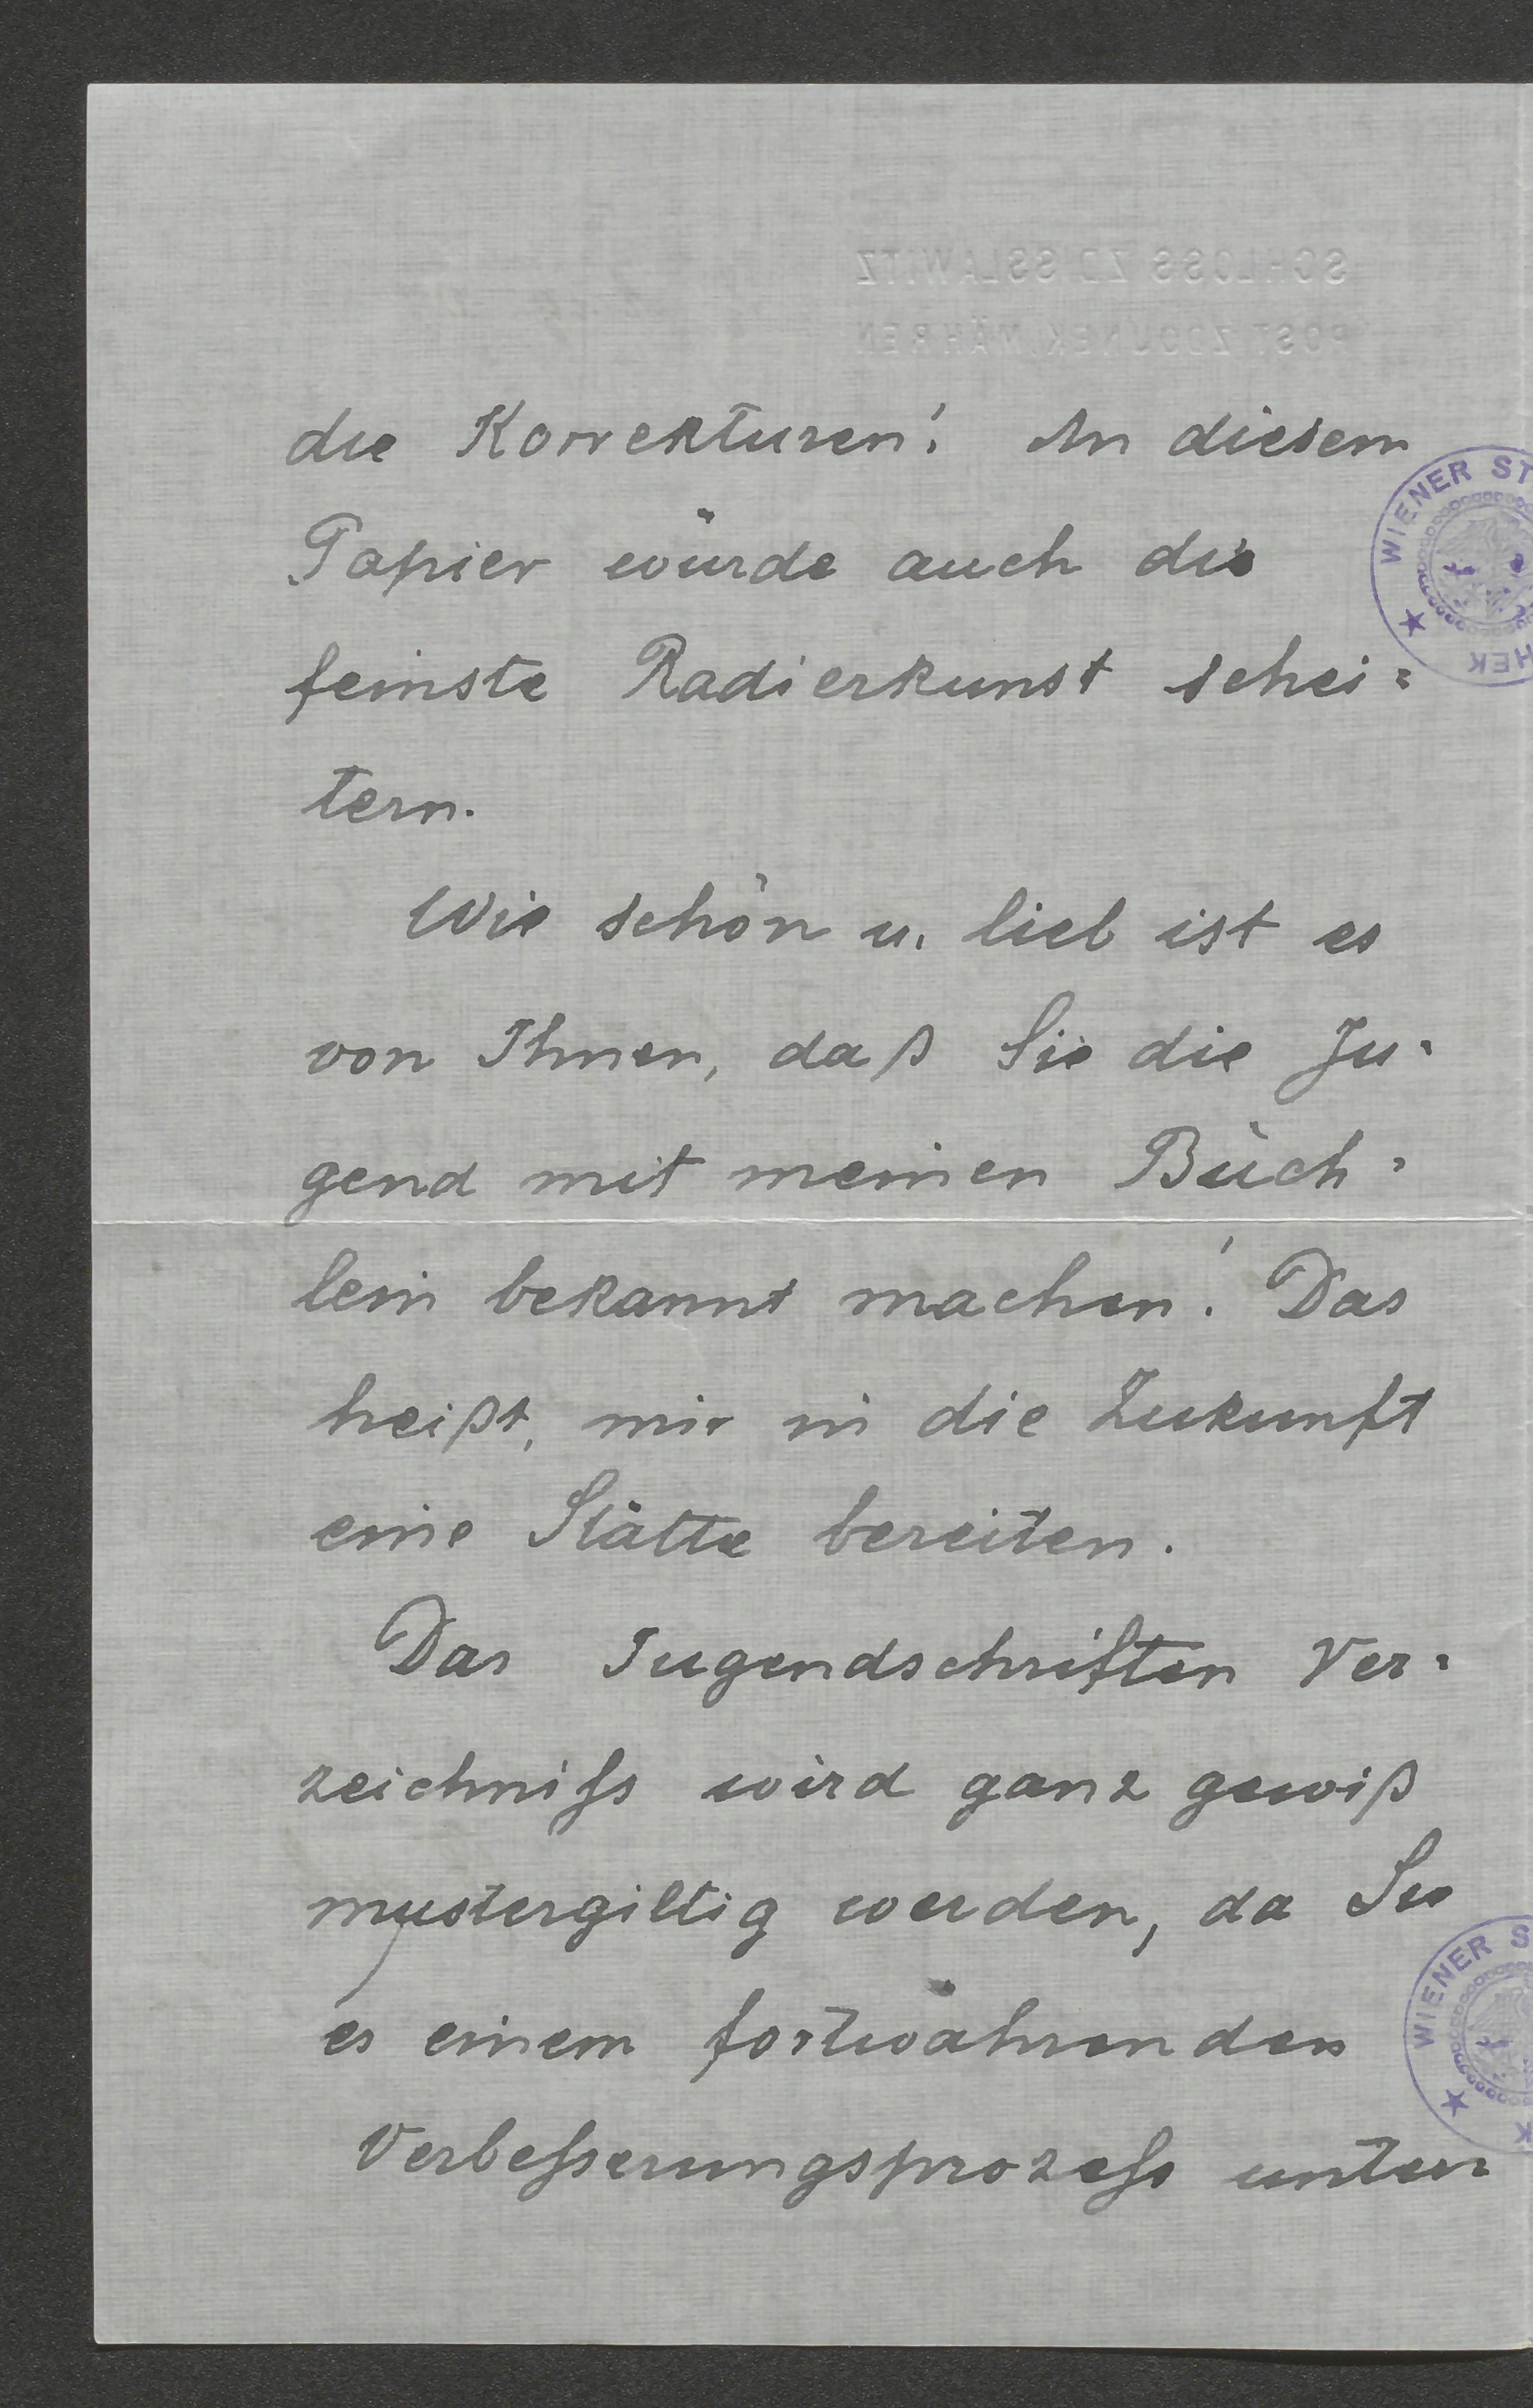 SCHLOSS ZDISSLAWITZ
POST ZDOUNEK, MÄHREN
die Korrekturen! An diesem
Papier würde auch die
feinste Radierkunst schei=
tern.
Wie schön u. lieb ist es
von Ihnen, daß Sie die Ju-
gend mit meinen Büch-
lein bekannt machen! Das
heißt, mir in die Zukunft
eine Stätte bereiten.
Das Jugendschriften Ver-
zeichniss wird ganz gewiß
mustergiltig werden, da Sie
es einem fortwährenden
Verbesserungsprozess unter-
WIENER ST
HEK
WIENER S
K